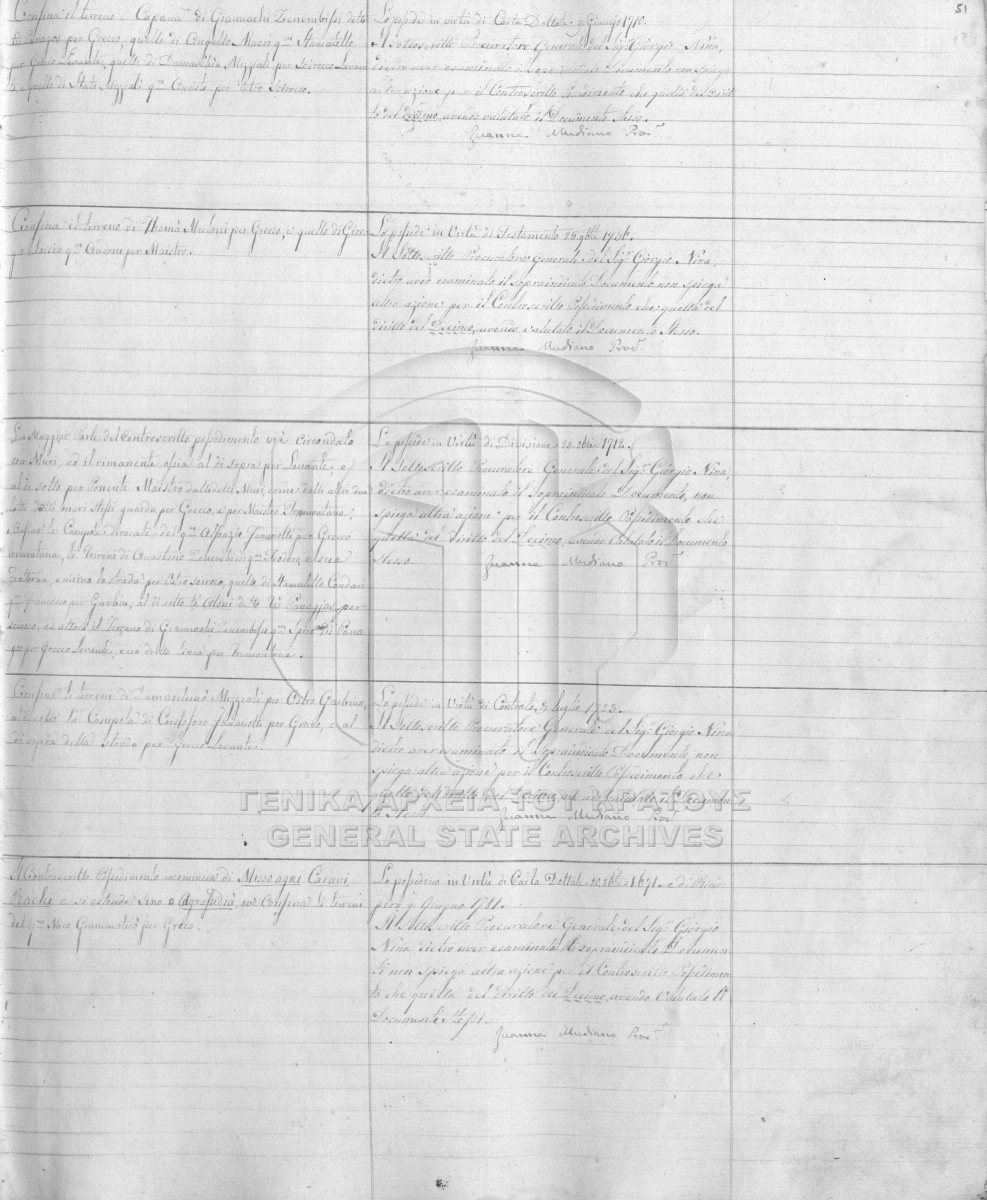 51
Confina il terreno e Capana di Giannachi Zenembissi detto
per Greco, quello di Angello Macri qm Stamatello
per Greco Levante, quello di Damaschin Mizzali per Scirocco Levan
te, e quello di Stati Mizzali qm per Ostro Scirocco.
Lo possede in virtù di Carta Dottale 9 Gennajo 1710.
Il Sottoscritto Procuratore Generale del Sigr Giorgio Nina,
dietro aver esaminato il sopraindicato Documento non spiega
altra azione per il Controscritto Possedimento che quella del Dirit
to del Decimo, avendo valutato il Documento stesso.
Zuanne Mudiano Procr
Confina il terreno di Thomà Muloni per Greco, e quello di Gior
gio qm Andoni per Maistro.
Lo possede in Virtù di Testamento 26 9bre 1756.
Il Sottoscritto Procuratore Generale del Sigr Giorgio Nina,
dietro aver esaminato il sopraindicato Documento non spiega
altra azione per il Controscritto Possedimento che quella del
diritto del Decimo, avendo valutato il Documento stesso.
Zuanne Mudiano Procr
La Maggior Parte del Controscritto possedimento v'è circondato
con Muri, ed il rimanente ossia al di sopra per Levante, e
al di sotto per Ponente Maistro dalli detti Muri, come dalli altri due
latti dalli muri stessi guarda per Greco, e per Maistro Tramontana:
Confina le Campole dirocate del qm Alfonzio Jannotti per Greco
Tramontana, li Terreni di Anastasio Zenembissi qm Todorin, e sua
Fratterna, e vicino la strada per Ostro Scirocco, quello di Stamatello Condari
qm Francesco per Garbin, al di sotto li Coloni detto Panagia per
Scirocco, ed attaca il Terreno di Giannachi Zenembissi qm Spiro
per Greco Levante, e va dritta linea per Tramontana.
Lo possede in Virtù di Divisione 20 Xbre 1712.
Il Sottoscritto Procuratore Generale del Sigr Giorgio Nina,
dietro aver esaminato il sopraindicato Documento, non
spiega altra azione per il Controscritto Possedimento che
quella del Diritto del Decimo, avendo valutato il Documento
stesso. Zuanne Mudiano Procr
Confina li terreni di Damaschino Mizzali per Ostro Garbino,
al di sotto la Casupola di Cristoforo Jannotti per Greco, e al
di sopra della strada per Greco Levante.
Lo possede in Virtù di Contratto 3 Luglio 1723.
Il Sottoscritto Procuratore Generale del Sigr Giorgio Nina
dietro aver esaminato il Sopraindicato Documento, non
spiega altra azione per il Controscritto Possedimento che
quella del diritto del Decimo, avendo valutato il Documen
to stesso. Zuanne Mudiano Procr
ΓΕΝΙΚΑ ΑΡΧΕΙΑ ΤΟΥ ΚΡΑΤΟΥΣ
GENERAL STATE ARCHIVES
Il Controscritto Possedimento incomincia di Messo agni Caravi
e si estende sino a Agrapidià, ove Confina li terreni
del qm Nico Grammaticò per Greco.
Lo possedeva in Virtù di Carta Dottale 1671 e di
9 Giugno 1711.
Il Sottoscritto Procuratore Generale del Sigr Giorgio
Nina dietro aver esaminato li sopraindicati Documen
ti non spiega altra azione per il Controscritto Possedimen
to che quella del diritto del Decimo, avendo valutato li
Documenti stessi.
Zuanne Mudiano Procr